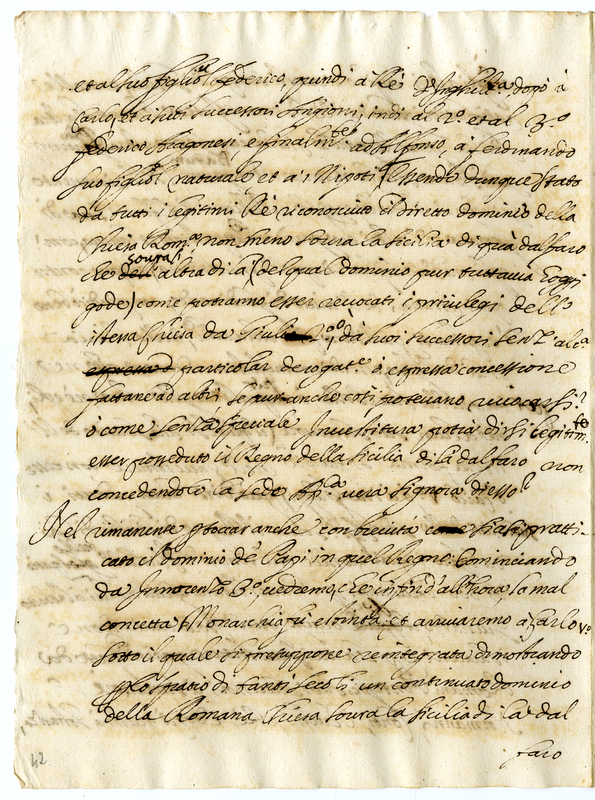 et al suo figliol federico, quindi a Rè d'Inghilt.ra dopò à
Carlo, et à suoi successori Angioini, indi al 2.o et al 3.o
federico Aragonesi, e finalm.te ad Alfonso, à ferdinando
suo figliol naturale et a i Nipoti. Essendo dunque stato
da tutti i legitimi Rè riconosciuto il diretto dominio della
Chiesa Rom.a non meno soura la Sicilia di quà dal faro
che dell' soura l' altra di la (del qual dominio pur tuttauia hoggi
gode) come potranno esser reuocati i priuilegi dell'
istessa Chiesa da Giulio 2.o ò da suoi successori senz' alc.a
espressa d particolar derogat.e ò espressa concessione
fattane ad altri se pur anche così poteuano riuocarsi?
ò come senza speciale Inuestitura potrà dirsi legitim.te
esser posseduto il Regno della Sicilia di là dal faro non
concedendolo la sede Ap.ca vera signora di esso?
Nel rimanente p toccar anche con breuita come sia si pratti-
cato il dominio de Papi in quel Regno. Cominciando
da Innocenzo 3.o uedremo, che infin d'all'hora la mal
concetta Monarchia fù estinta, et arriuaremo a Carlo V.o
sotto il quale si presuppone reintegrata dimostrando
p lo spatio di tanti secoli un continuato dominio
della Romana Chiesa soura la Sicilia di là dal
faro
42